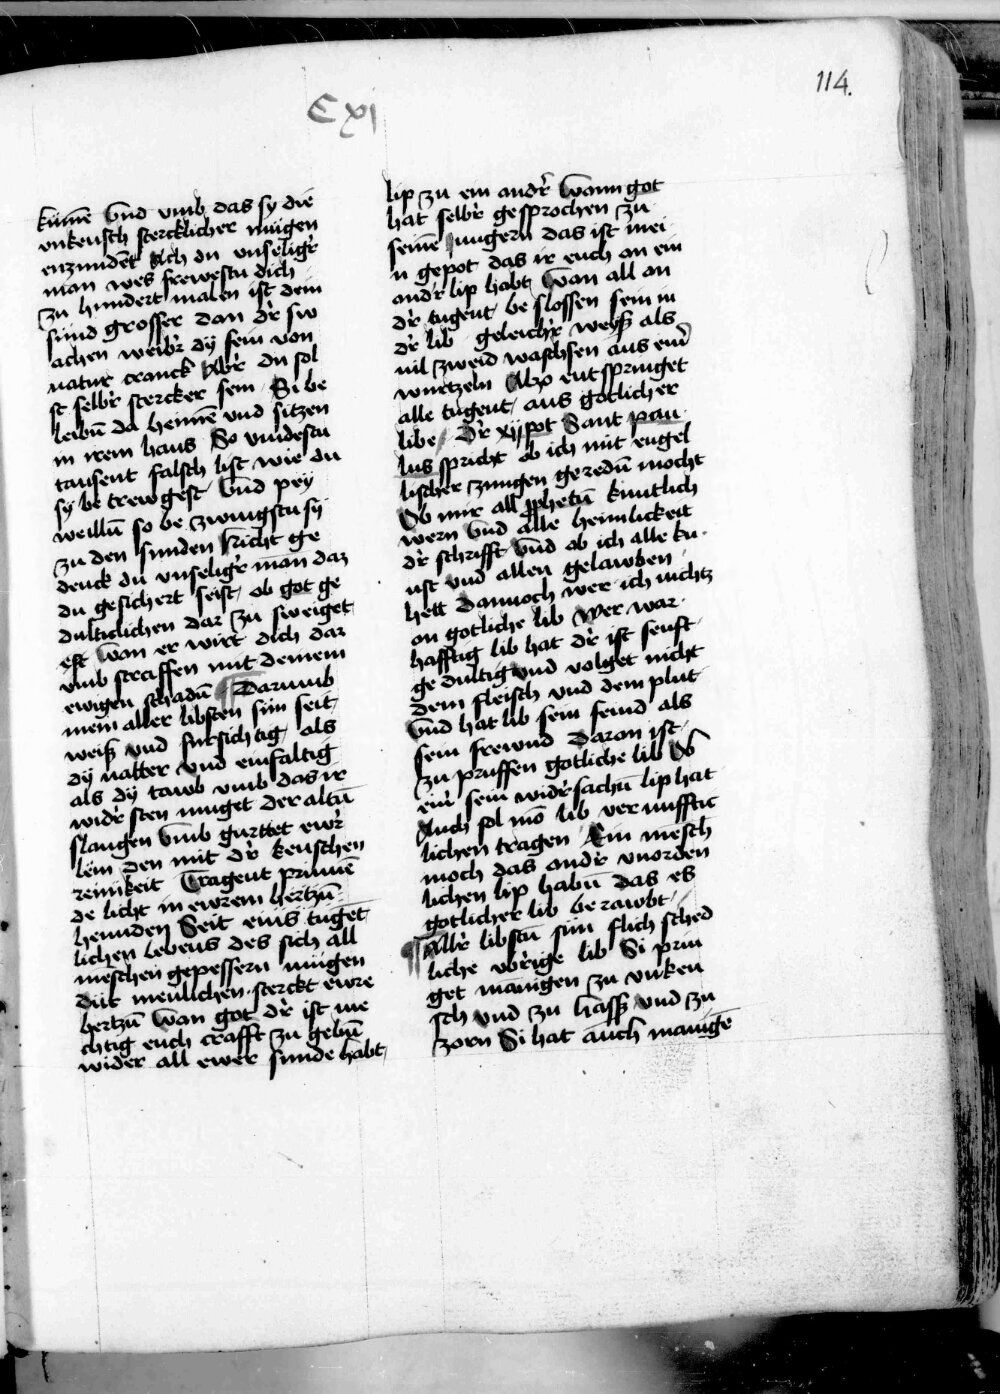 114.
C xi
kumē vnd vmb das sy die
vnkeusch stercklicher mugen
enzundēt Ach du vnseligr̄
man wes frewestu dich
zu hundert malen ist dein
sund grosser dan dr̄ sw
achen weibr̄ dy sein von
natur cranck Abr̄ du sol
st selbr̄ stercker sein Si be
leibū da heimē vnd sitzen
in irem haus So vindestu
tausent falsch list wie du
sy be trewgest Vnd pey
weillū so be zwingstu sy
zu den sunden Nicht ge
denck du vnseligr̄ man daz
du gesichert seist ob got ge
dulticlichen dar zu sweiget
est wan er wirt dich dar
vmb straffen mit deinem
ewigen schadū Darumb
mein aller libsten sun seit
weiß vnd fursichtig als
dy natter vnd einfaltig
als dy tawb vmb das ir
widr̄ sten muget der altū
slangen Vmb gurttet ewr̄
lēin den mit dr̄ keuschen
reinikeit Tragent prinnē
de licht in ewrem hertzū
hennden Seit eins tugēt
lichen lebens des sich all
meschen gepessern mugen
Dut menlichen sterckt ewre
hertzū Wan got dr̄ ist me
chtig euch crafft zu gebū
wider all ewer sunde habt
lip zu ein andr̄ Wann got
hat selbr̄ gesprochen zu
seinē iungern das ist mei
n gepot das ir euch an ein
andr̄ lip habt Wan all an
dr̄ tugent be slossen sein in
dr̄ lib geleichr̄ weyß als
vil zweid wachsen aus einr̄
wurtzeln Alzo entspringet
alle tugent aus gotlicher
libe Dr̄ xij pot Sant pau
lus spricht ob ich mit engel
lischer zungen geredū mocht
Ob mir all pphetū kuntlich
wern Vnd alle heimlickeit
dr̄ schrifft Vnd ob ich alle ku
nst vnd allen gelawben
hett Dannoch wer ich nichtz
on gotliche lib Wer war
hafftig lib hat dr̄ ist senft
ge dultig vnd volget nicht
dem fleisch vnd dem plut
Vnd hat lib sein feind als
sein frewnd Daran ist
zu pruffen gotliche lib Ob
einr̄ sein widr̄sachū lip hat
Auch sol mā lib ver nufftic
lichen tragen Ein mesch
moch das andr̄ vnorden
lichen lip habū das es
gotlicher lib be rawbt
Allr̄ libstū sun flich sched
liche vbrige lib Si prin
get manigen zu vnkeu
sch vnd zu hasß vnd zu
zorn Si hat auch manigē